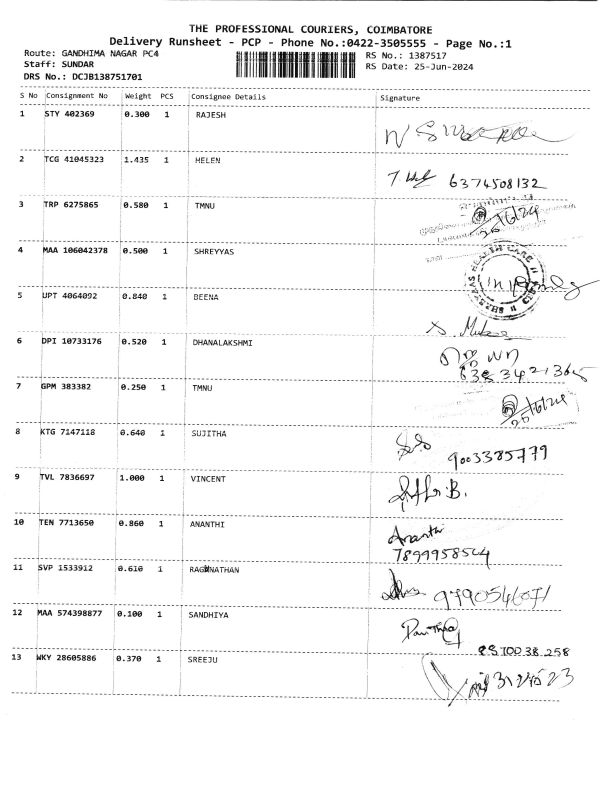 THE PROFESSIONAL COURIERS, COIMBATORE
Delivery Runsheet - PCP - Phone No.:0422-3505555 - Page No.:1
Route: GANDHIMA NAGAR PC4 RS No.: 1387517
Staff: SUNDAR RS Date: 25-Jun-2024
DRS No.: DCJB138751701
S No Consignment No Weight PCS Consignee Details Signature
1 STY 402369 0.300 1 RAJESH
2 TCG 41045323 1.435 1 HELEN
6374508132
3 TRP 6275865 0.580 1 TMNU
25/6/24
4 MAA 106042378 0.500 1 SHREYYAS
HEALTH CARE
5 UPT 4064092 0.840 1 BEENA
6 DPI 10733176 0.520 1 DHANALAKSHMI
7 GPM 383382 0.250 1 TMNU
25/6/24
8 KTG 7147118 0.640 1 SUJITHA
9003385779
9 TVL 7836697 1.000 1 VINCENT
10 TEN 7713650 0.860 1 ANANTHI
Ananthi
7899958504
11 SVP 1533912 0.610 1 RAGUNATHAN
12 MAA 574398877 0.100 1 SANDHIYA
13 WKY 28605886 0.370 1 SREEJU